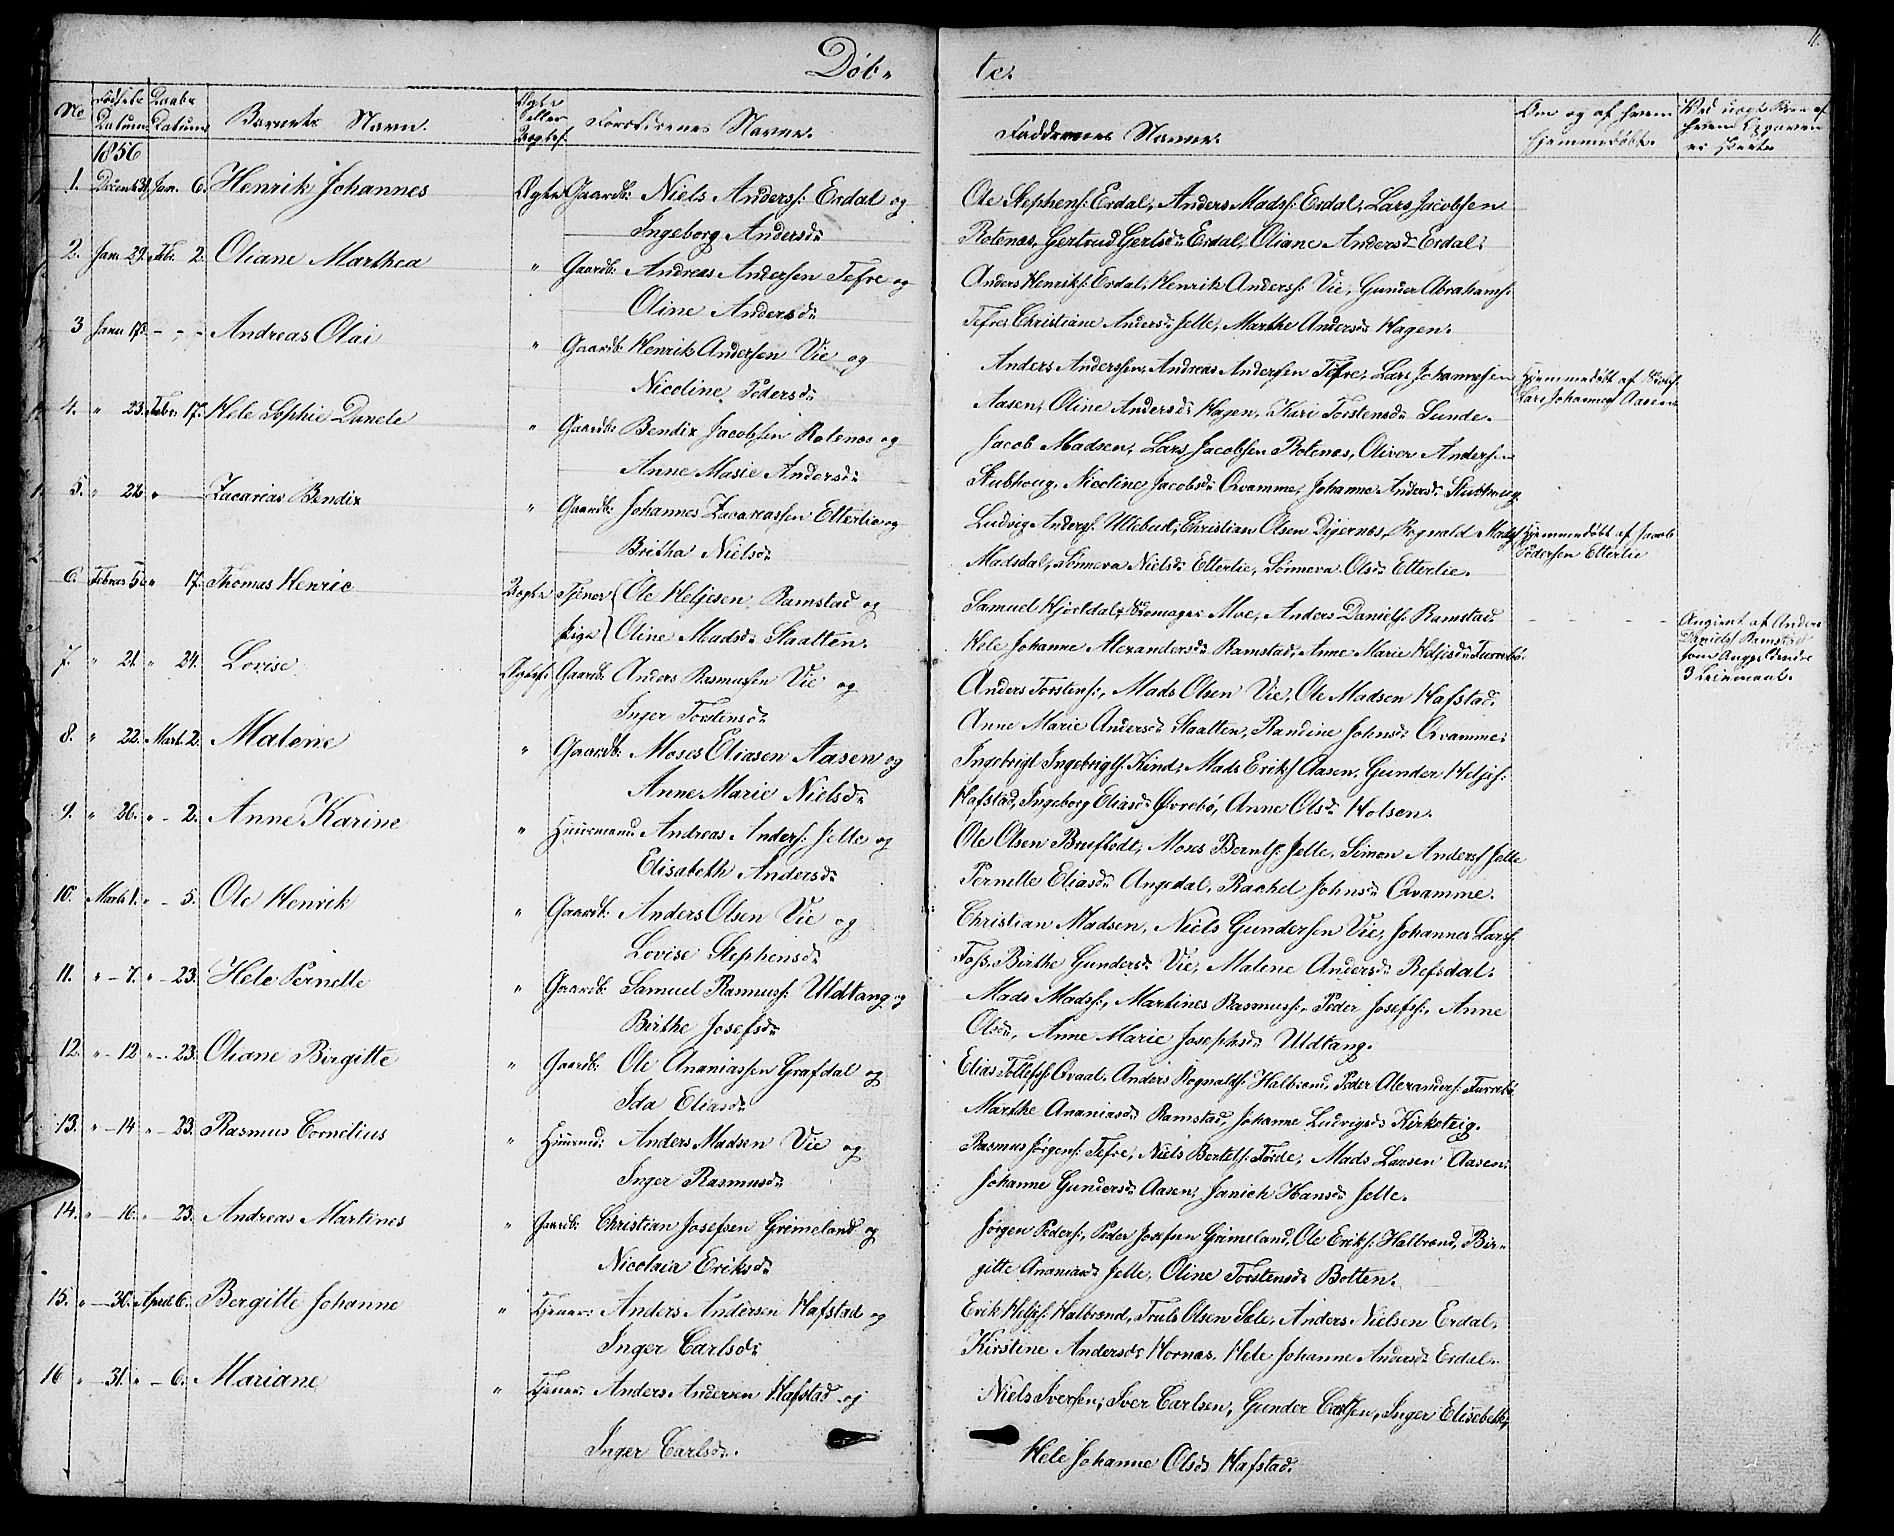 Døb-
te.
11.
No
Fødsels Datum.
Daabs Datum.
Barnets Navn.
Ægte eller Uægte.
Forældrenes Navne.
Faddernes Navne.
Om og af hvem hjemmedøbt.
Ved uægte Børn af hvem Opgaven er skeet.
1856
1. Decemb 31. Jan. 6. Henrik Johannes Ægte Gaardb: Niels Anders: Erdal og
Ingeborg Andersd:
Ole Stephens: Erdal, Anders Mads: Erdal, Lars Jacobsen
Rotenæs, Gertrud Gertsd: Erdal, Oliane Andersd: Erdal.
2. Jan. 29. Febr. 2. Oliane Marthea " Gaardb: Andreas Andersen Tefre og
Oline Andersd:
Anders Henriks: Erdal, Henrik Anders: Vie, Gunder Abrahams:
Tefre, Christiane Andersd: Jelle, Marthe Andersd: Hagen.
3 Janu 17. - " - Andreas Olai " Gaardb: Henrik Andersen Vie og
Nicoline Pedersd:
Anders Anderssen, Andreas Andersen Tefre, Lars Johannesen
Aasen, Oline Andersd: Hagen, Kari Torstensd: Sunde.
Hjemmedøbt af
Lars Johannes Aasen
4. " 23. Febr. 17. Hele Sophie Danele " Gaardb: Bendix Jacobsen Rotenæs og
Anne Marie Andersd:
Jacob Madsen, Lars Jacobsen Rotenæs, Oliver Andersen
Stubhoug, Nicoline Jacobsd: Qvamme, Johanne Andersd: Stubhoug
5. " 28 " Zacarias Bendix " Gaardb: Johannes Zacariassen Etterlie og
Britha Nielsd:
Ludvig Anders: Ullebust, Christian Olsen Digernæs, Rognald Mads:
Madsdal, Sønneva Nielsd: Etterlie, Sønneva Olsd: Etterlie.
Hjemmedøbt af Jacob
Pedersen Etterlie
6. Februar 5. " 17. Thomas Henric Uægte Tjener Ole Heljesen Ramstad og
Pige Oline Madsd: Slaatten.
Samuel Hjortdal, Skomager Moe, Anders Daniels: Ramstad
Hele Johanne Alexandersd: Ramstad, Anne Marie Heljesd: Furrebø.
Angivet af Anders
Daniels: Ramstad
som
3 Leiermaal.
7. " 21. " 24. Lovise Ægte Gaardb: Anders Rasmussen Vie og
Inger Torstensd:
Anders Torstens:, Mads Olsen Vie, Ole Madsen Hafstad.
Anne Marie Andersd: Slaatten, Randine Johnsd: Qvamme.
8. " 22. Marts 2. Malene " Gaardb: Moses Eliasen Aasen og
Anne Marie Nielsd:
Ingebrigt Ingebrigts: Kind, Mads Eriks: Aasen, Gunder Heljes:
Hafstad, Ingeborg Eliasd: Øvrebø, Anne Olsd: Holsen.
9. " 26. " - 2. Anne Karine " Huusmand Andreas Anders: Jelle og
Elisabeth Andersd:
Ole Olsen Bruflodt, Moses Bernts: Jelle, Simon Anders: Jelle
Pernelle Eliasd: Angedal, Rachel Johnsd: Qvamme.
10. Marts 1. " - 5. Ole Henrik " Gaardb: Anders Olsen Vie og
Lovise Stephensd:
Christian Madsen, Niels Gundersen Vie, Johannes Lars:
Foss, Birthe Gundersd: Vie, Malene Andersd: Refsdal.
11. " - 7. " - 23. Hele Pernelle " Gaardb: Samuel Rasmus: Uldtang og
Birthe Josefsd:
Mads Mads:, Martines Rasmus:, Peder Josefs:, Anne
Olsd:, Anne Marie Josephsd: Uldtang.
12. " - 12 " - 23. Oliane Birgitte " Gaardb: Ole Ananiassen Grafdal og
Ida Eliasd:
Elias Tollefs: Qvaal, Anders Rognalds: Halbrend, Peder Alexanders: Furrebø
Marthe Ananiasd: Ramstad, Johanne Ludvigsd: Kirketeig.
13. " - 14 " - 23. Rasmus Cornelius " Huusmd: Anders Madsen Vie og
Inger Rasmusd:
Rasmus Jørgens: Tefre, Niels Bertels: Førde, Mads Larsen Aasen.
Johanne Gundersd: Aasen, Janich Hansd: Jelle.
14. " - 16. " 23. Andreas Martines " Gaardb: Christian Josefsen Grimeland og
Nicolaia Eriksd:
Jørgen Peders:, Peder Josefsen Grimeland, Ole Eriks: Halbrend, Bir-
gitte Ananiasd: Jelle, Oline Torstensd: Botten.
15. " - 30. April 6. Bergitte Johanne " Tjener: Anders Andersen Hafstad og
Inger Carlsd:
Erik Heljes: Halbrend, Truls Olsen Sæle, Anders Nielsen Erdal,
Kirstine Andersd: Hornæs, Hele Johanne Andersd: Erdal.
16 " - 31. " - 6. Mariane " Tjener: Anders Andersen Hafstad og
Inger Carlsd:
Niels Iversen, Iver Carlsen, Gunder Carlsen, Inger Elisebeth,
Hele Johanne Olsd: Hafstad.